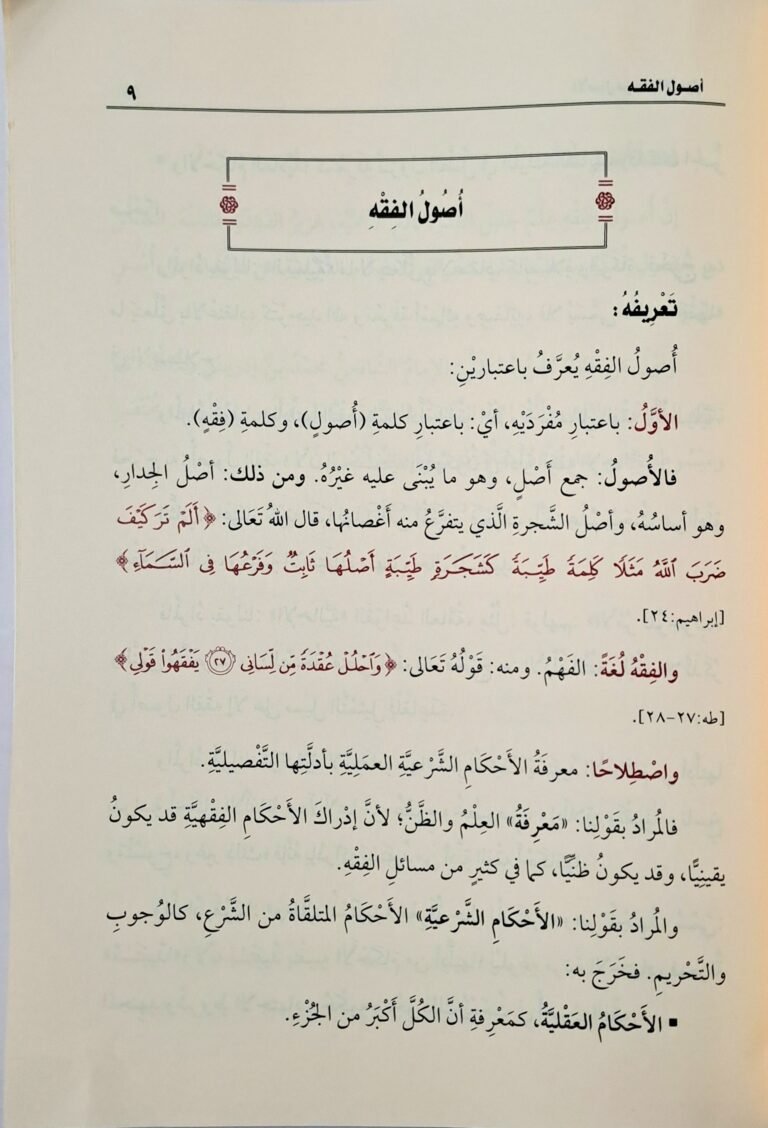 أصول الفقه
٩
أُصُولُ الفِقْهِ
تَعْرِيفُهُ:
أُصولُ الفِقْهِ يُعرَّفُ باعتبارَيْنِ:
الأوَّلُ: باعتبارِ مُفْرَدَيْهِ، أيْ: باعتبارِ كلمةِ (أُصولٍ)، وكلمةِ (فِقْهٍ).
فالأُصولُ: جمع أَصْلٍ، وهو ما يُبْنَى عليه غيْرُهُ. ومن ذلك: أصْلُ الجِدارِ،
وهو أساسُهُ، وأصْلُ الشَّجرةِ الَّذي يتفرَّعُ منه أغْصانُها، قال اللهُ تَعَالى: ﴿أَلَمْ تَرَ كَيْفَ
ضَرَبَ ٱللَّهُ مَثَلًا كَلِمَةً طَيِّبَةً كَشَجَرَةٍ طَيِّبَةٍ أَصْلُهَا ثَابِتٌ وَفَرْعُهَا فِى ٱلسَّمَآءِ﴾
[إبراهيم:٢٤].
والفِقْهُ لُغَةً: الفَهْمُ. ومنه: قَوْلُهُ تَعَالى: ﴿وَٱحْلُلْ عُقْدَةً مِّن لِّسَانِى ٢٧ يَفْقَهُوا۟ قَوْلِى﴾
[طه:٢٧-٢٨].
واصْطِلاحًا: معرفَةُ الأَحْكامِ الشَّرْعيَّةِ العمَليَّةِ بأدلَّتِها التَّفْصيليَّةِ.
فالمُرادُ بقَوْلِنا: «مَعْرِفَةُ» العِلْمُ والظَّنُّ؛ لأنَّ إدْراكَ الأَحْكامِ الفِقْهيَّةِ قد يكونُ
يقينِيًّا، وقد يكونُ ظنِّيًّا، كما في كثيرٍ من مسائلِ الفِقْهِ.
والمُرادُ بقَوْلِنا: «الأَحْكامِ الشَّرْعيَّةِ» الأَحْكامُ المتلقَّاةُ من الشَّرْعِ، كالوُجوبِ
والتَّحْريمِ. فخَرَجَ به:
▪ الأَحْكامُ العَقْليَّةُ، كمَعْرِفةِ أنَّ الكُلَّ أَكْبَرُ من الجُزْءِ.